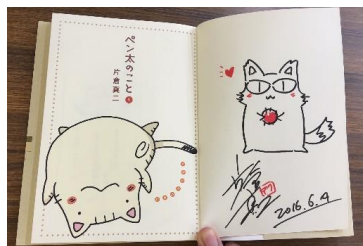 ペン太のこと 1
片倉真二
2016.6.4